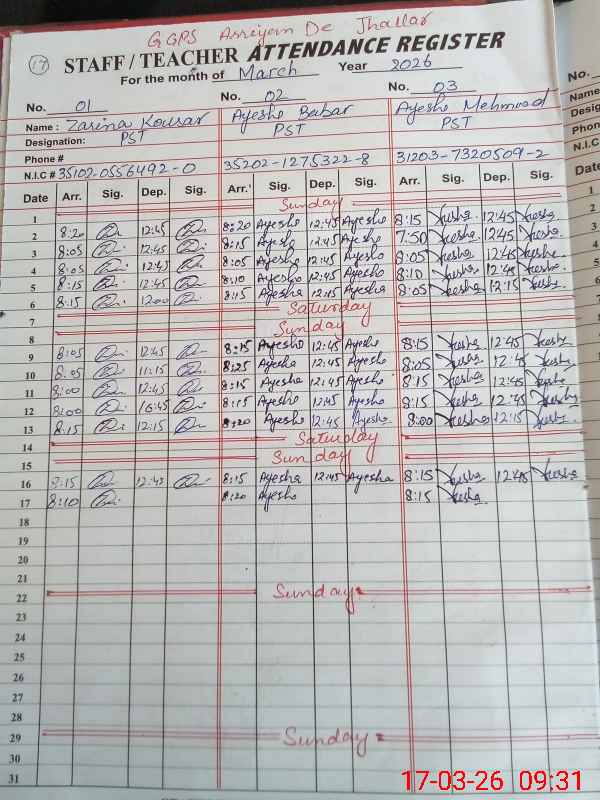 GGPS Arriyan De Jhallar
17 STAFF / TEACHER ATTENDANCE REGISTER
For the month of March Year 2026
No. 01 No. 02 No. 03
Name : Zarina Kousar Ayesha Babar Ayesha Mehmood
Designation: PST PST PST
Phone #
N.I.C # 35102-0556492-0 35202-1275322-8 31203-7320509-2
Date Arr. Sig. Dep. Sig. Arr. Sig. Dep. Sig. Arr. Sig. Dep. Sig.
1 Sunday
2 8:20 12:45 8:20 Ayesha 12:45 Ayesha 8:15 12:45
3 8:05 12:45 8:15 Ayesha 12:45 Ayesha 7:50 12:45
4 8:05 12:45 8:05 Ayesha 12:45 Ayesha 8:05 12:45
5 8:15 12:45 8:10 Ayesha 12:45 Ayesha 8:10 12:45
6 8:15 1200 8:15 Ayesha 12:15 Ayesha 8:05 12:15
7 Saturday
8 Sunday
9 8:05 12:45 8:15 Ayesha 12:45 Ayesha 8:15 12:45
10 8:05 11:15 8:25 Ayesha 12:45 Ayesha 8:05 12:45
11 8:00 12:45 8:15 Ayesha 12:45 Ayesha 8:15 12:45
12 8:00 8:15 Ayesha 12:45 Ayesha 8:15 12:45
13 8:15 12:15 8:20 Ayesha 12:45 Ayesha 8:00 12:15
14 Saturday
15 Sunday
16 8:15 12:45 8:15 Ayesha 12:45 Ayesha 8:15 12:45
17 8:10 8:20 Ayesha 8:15
18
19
20
21
22 Sunday
23
24
25
26
27
28
29 Sunday
30
31
17-03-26 09:31